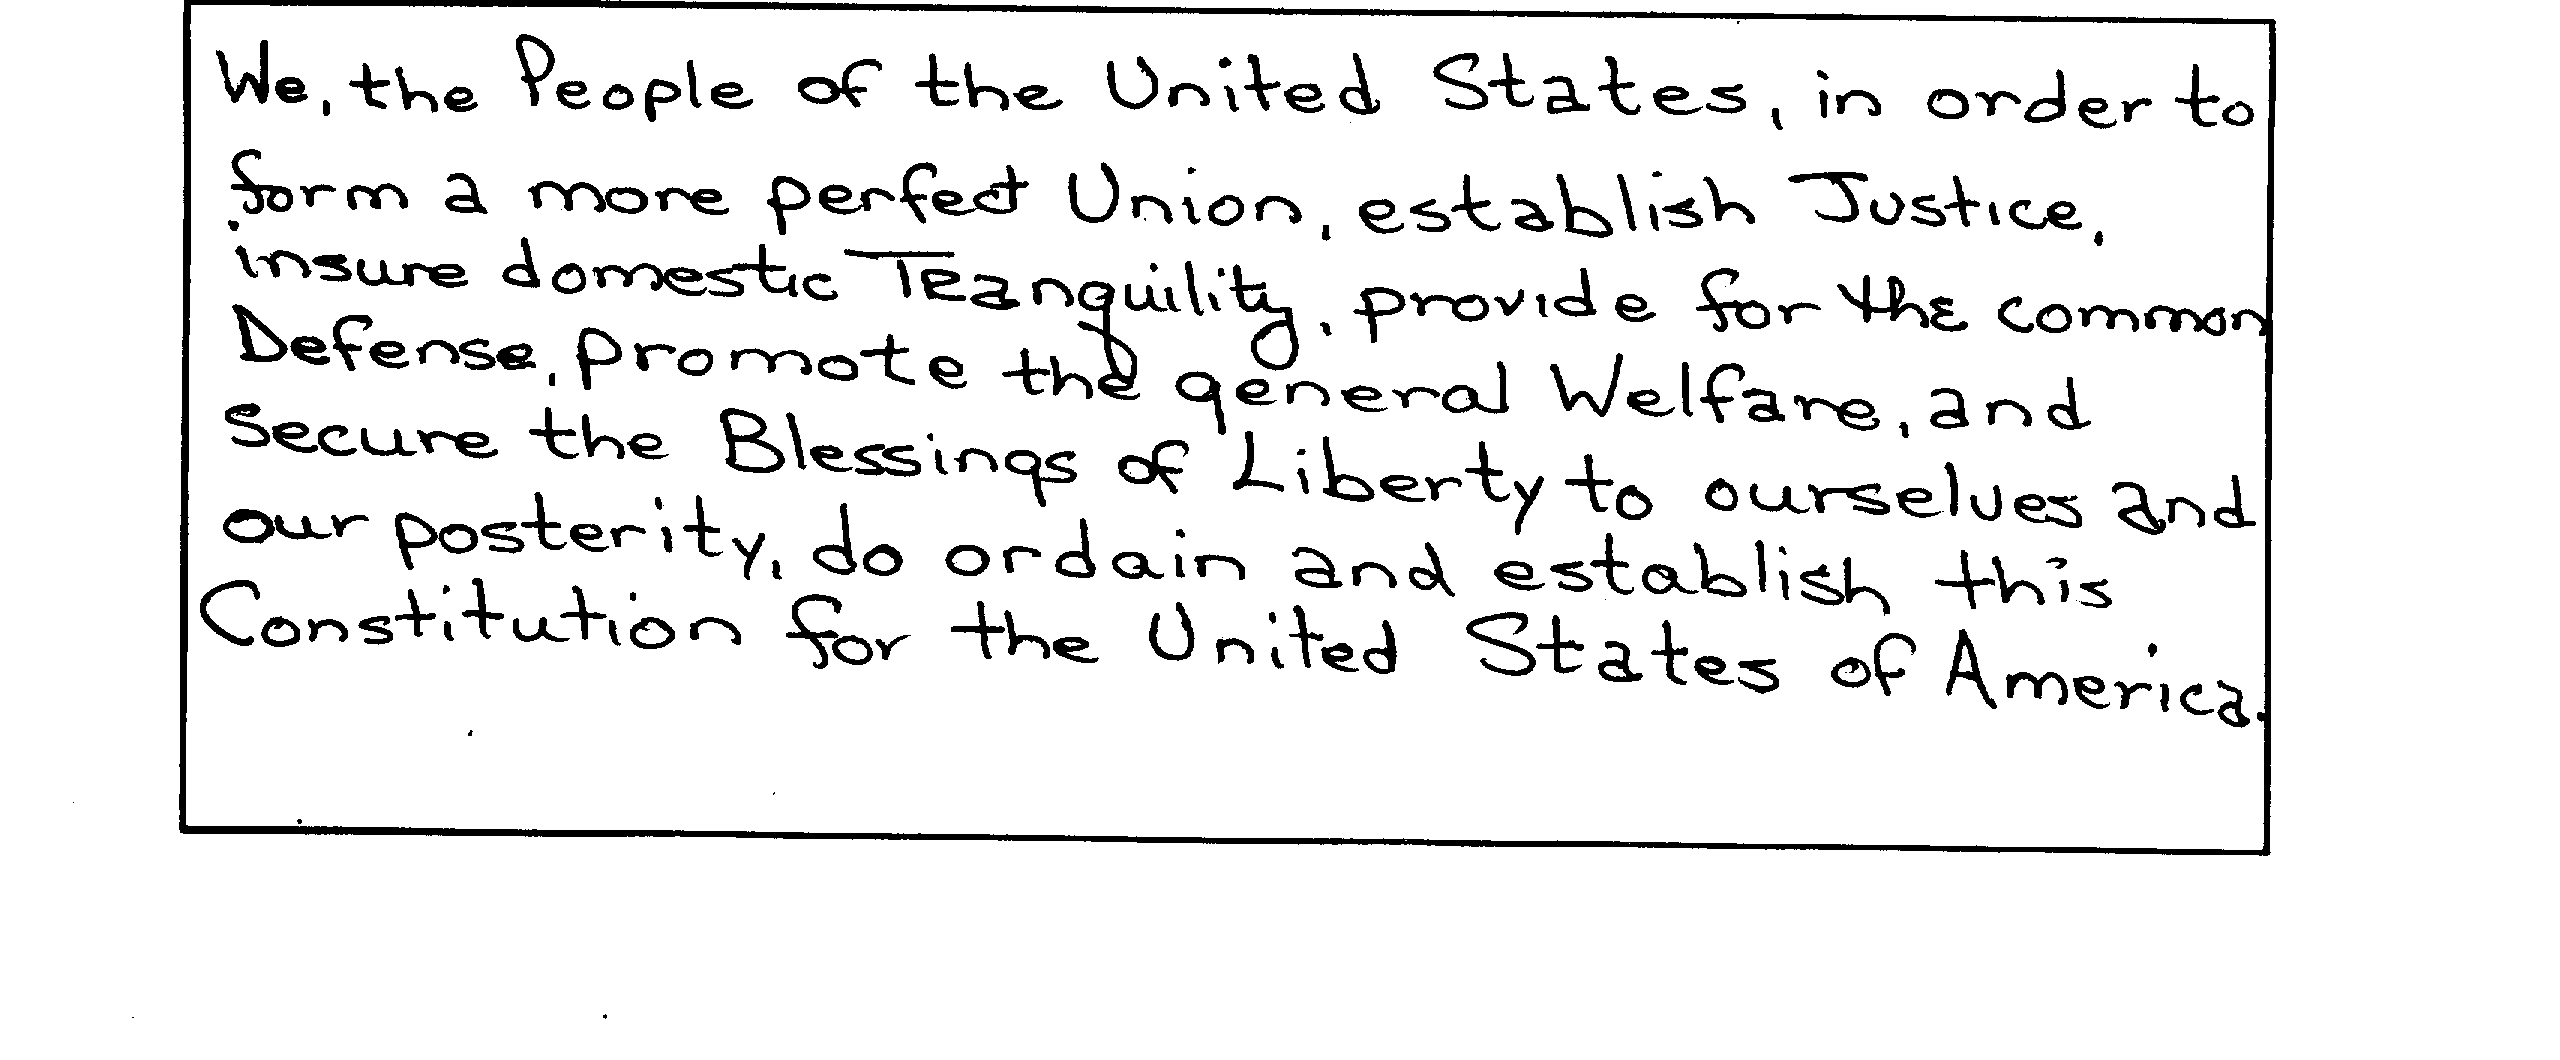 We, the People of the United States, in order to
form a more perfect Union, establish Justice,
insure domestic Tranquility, provide for the common
Defense, promote the general Welfare, and
secure the Blessings of Liberty to ourselves and
our posterity, do ordain and establish this
Constitution for the United States of America.